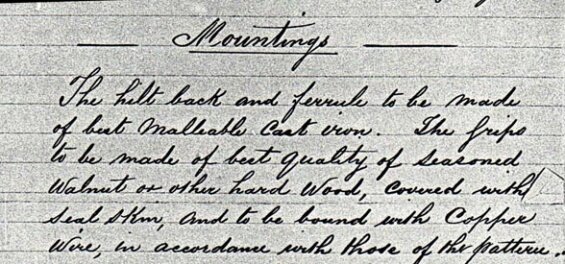 Mountings
The hilt back and ferrule to be made
of best Malleable Cast iron. The Grips
to be made of best Quality of Seasoned
Walnut or other hard Wood, Covered with
Seal Skin, and to be bound with Copper
Wire, in accordance with those of the Pattern.